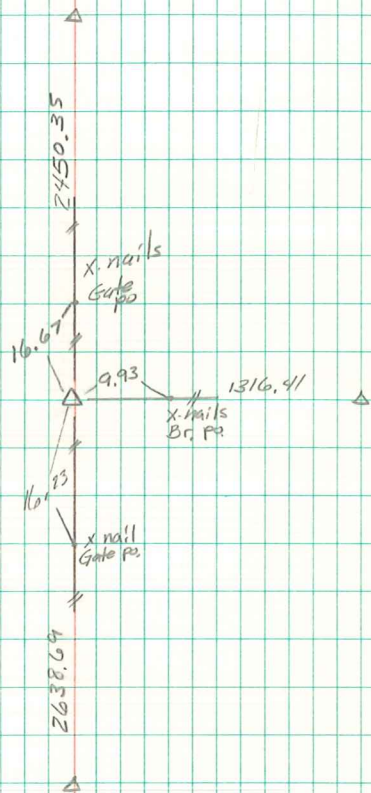 2450.35
X-nails
Gate
po
16.67
9.93
1316.41
X-nails
Br. po.
16.93
x nail
Gate po.
2638.69